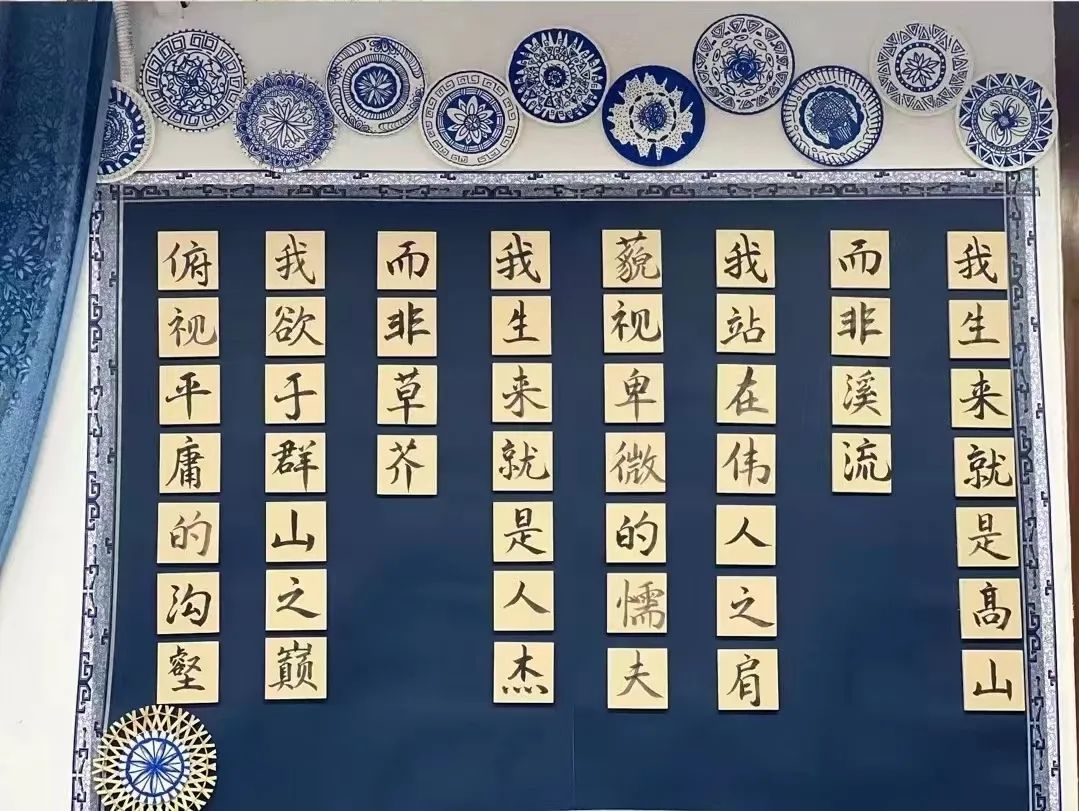 我生来就是高山
而非溪流
我站在伟人之肩
藐视卑微的懦夫
我生来就是人杰
而非草芥
我欲于群山之巅
俯视平庸的沟壑